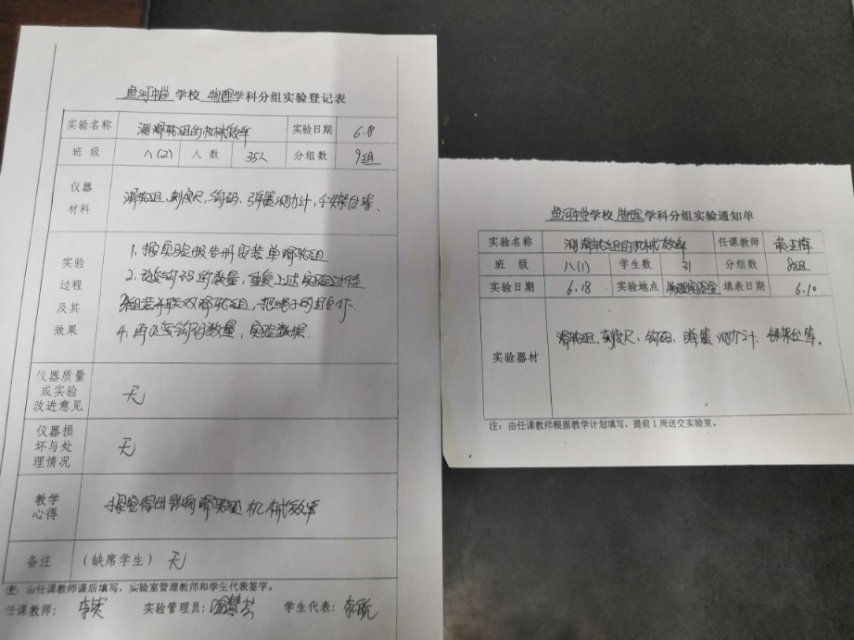 鱼河中学 学校 物理 学科分组实验登记表
实验名称 测滑轮组的机械效率 实验日期 6.8
班 级 八(2) 人 数 35人 分组数 9组
仪器材料 滑轮组、刻度尺、钩码、弹簧测力计、铁架台等.
实验过程及其效果
1. 按实验报告册安装单滑轮组
2. 改变钩码的数量，重复上过实验过程
4. 再改变钩码数量，实验数据.
仪器质量或实验改进意见 无
仪器损坏与处理情况 无
教学心得 探究得出影响滑轮组机械效率
备注 （缺席学生） 无
注：由任课教师课后填写，实验室管理教师和学生代表签字。
任课教师： 实验管理员： 学生代表：
鱼河中学 学校 物理 学科分组实验通知单
实验名称 测滑轮组的机械效率 任课教师
班 级 八(1) 学生数 31 分组数 8组
实验日期 6.18 实验地点 物理实验室 填表日期 6.10
实验器材 滑轮组、刻度尺、钩码、弹簧测力计、铁架台等。
注：由任课教师根据教学计划填写，提前1周送交实验室。